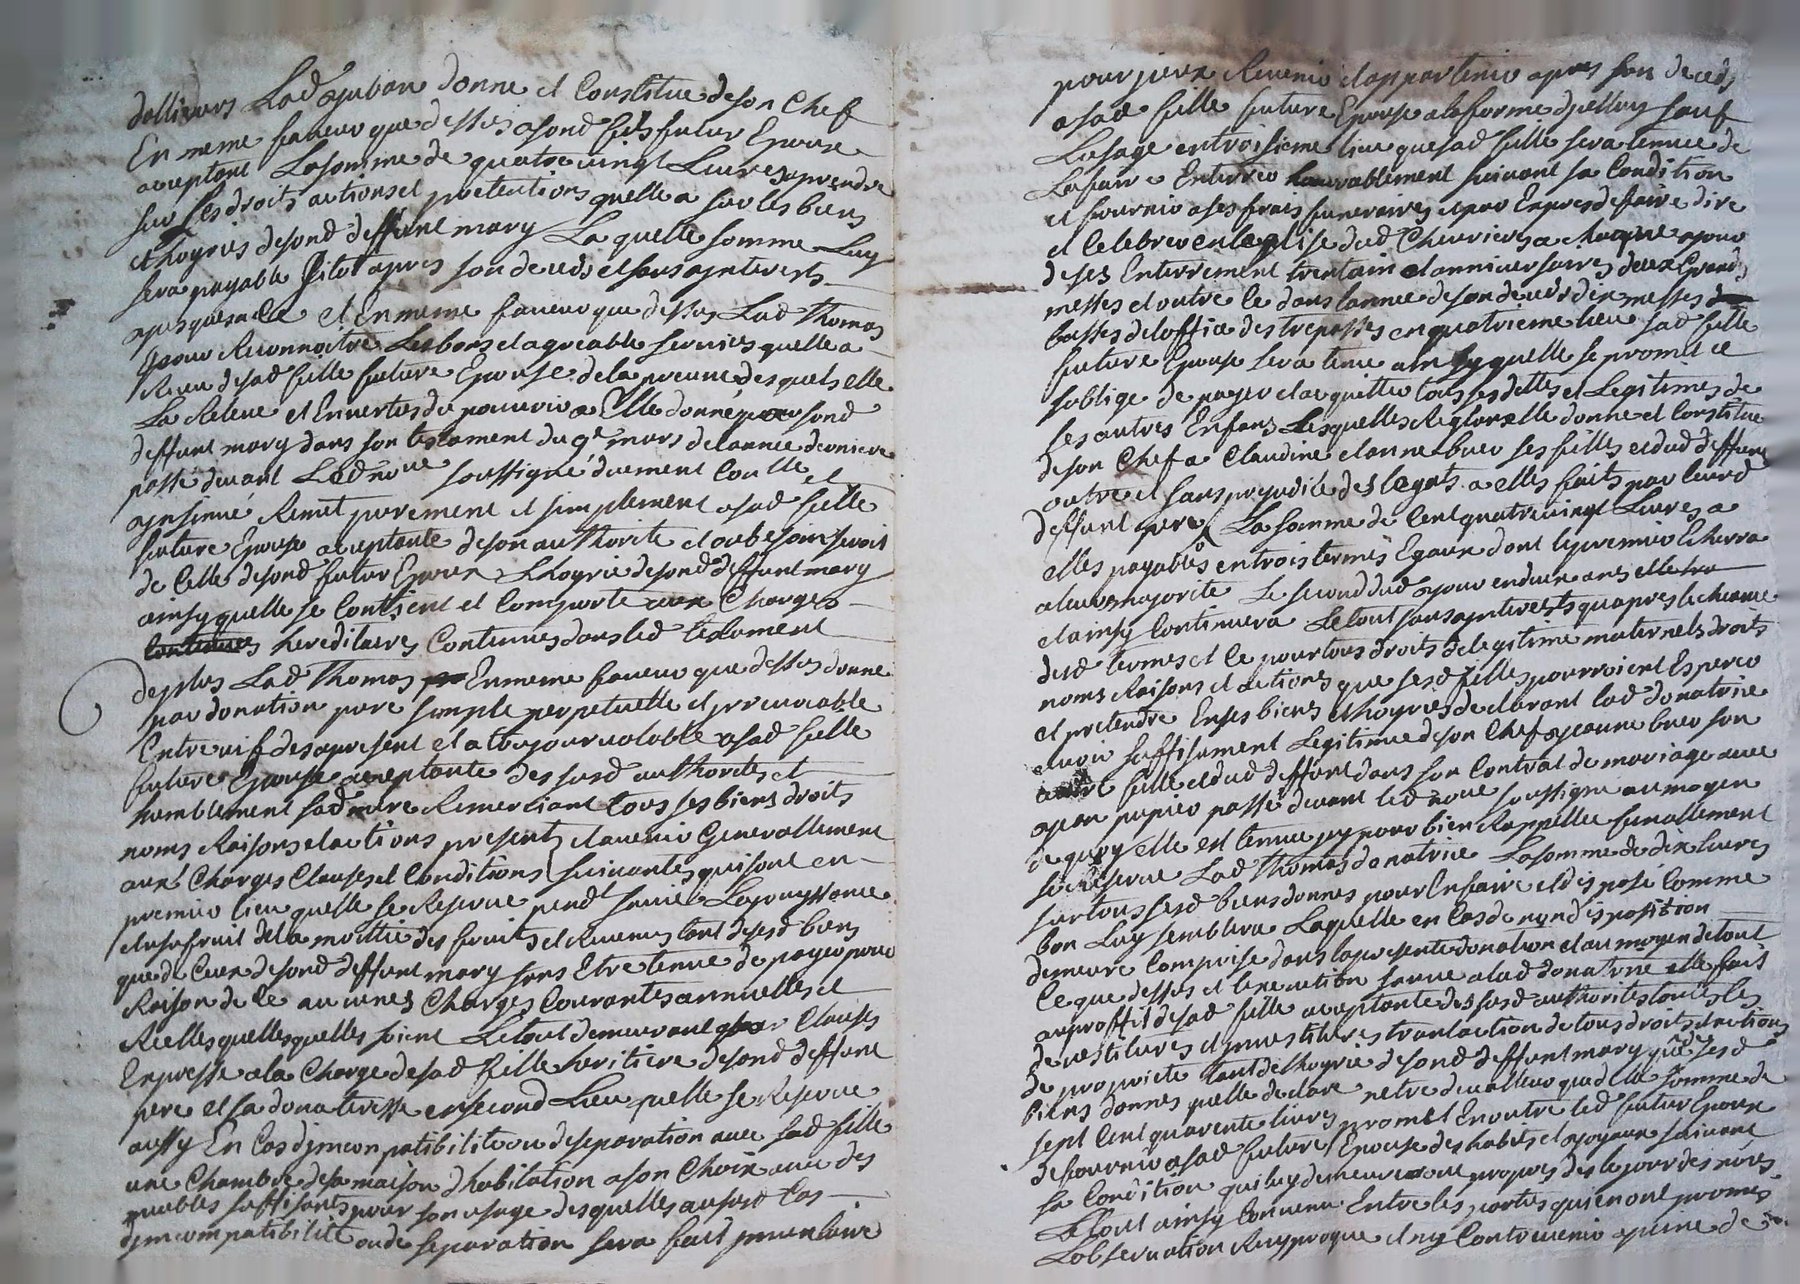 dallieurs Lad Juban donne et Constitue de son Chef
En meme faveur que dessus a sond fils futur Epoux
acceptant La somme de quatre vingt Livres a prendre
sur ses droits actions et pretentions quelle a sur les biens
et hoyries de sond deffunt mary La quelle somme Luy
sera payable sitot apres son deceds et sans jnterests
jusques a Ce et En meme faveur que dessus Lad Thomas
pour Reconnoitre Les bons et agreable services quelle a
Receu de sad fille future Epouse de la preuve desquels elle
La Releve et En vertus du pouvoir a Elle donné par sond
deffunt mary dans son testament du 9e mars de lannée derniere
passé devant Led noe soussigné duement Conllé et
jnsinué Remet purement et simplement a sad fille
future Epouse acceptante de son authorité et au besoin seroit
de Celle de sond futur Epoux Lhoyrie de sond deffunt mary
ainsy quelle se Contient et Comporte aux Charges
hereditaires Contenues dans led testament
de plus Lad Thomas En meme faveur que dessus donne
par donation pure simple perpetuelle et jrrevocable
Entre vif des a present et a toujour valable a sad fille
future Epouse acceptante des susd authorités et
humblement sad mere Remerciant tous ses biens droits
noms Raisons et actions presents et avenir Generallement
aux Charges Clauses et Conditions suivantes qui sont en
premier lieu quelle se Reserve pendt sa vie La jouyssance
et usufruit de la moitié des fruits et Revenus tant de sesd biens
que de Ceux de sond deffunt mary sans Etre tenue de payer pour
Raison de Ce aucunes Charges Courantes annuelles et
Reelles quelles quelles soient Le tout demeurant par Clauses
Expresse a la Charge de sad fille heritiere de sond deffunt
pere et sa donateresse en second Lieu quelle se Reserve
aussy En Cas djncompatibilité ou de separation avec sad fille
une Chambre de sa maison dhabitation a son Choix avec des
meubles suffisants pour son usage desquelles aud Cas
djncompatibilité ou de separation sera fait jnventaire
pour jceux Revenir et appartenir apres son deceds
a sad fille future Epouse a la forme djcelluy sauf
Lusage en troisieme lieu que sad fille sera tenue de
La faire Enterrer honorablement suivant sa Condition
et fournir a ses frais funeraires et par Expres de faire dire
et Celebrer en leglise dud Chevrieres a Chaque jour
de ses Enterrement trentain et anniversaires deux Grands
messes et outre Ce dans lannée de son deceds dix messes
basses de loffice des trepasses en quatrieme lieu sad fille
future Epouse sera tenue ainsy quelle se promet et
soblige de payer et acquitter tous ses dettes et Legitimes de
ses autres Enfans Lesquelles Reglant elle donne et Constitue
de son Chef a Claudine et anne buer ses filles et dud deffunt
outre et sans prejudice des legats a elles faits par leurd
deffunt pere La somme de Cent quatre vingt Livres a
elles payables en trois termes Egaux dont le premier Echerra
a leur majorité Le second dud jour en deux ans
et ainsy Continuera Le tout sans jnterests quapres lecheance
desd termes et Ce pour tous droits de legitime maternels droits
noms Raisons et actions que sesd filles pourroient Esperer
et pretendre En ses biens et hoyries declarant lad donatrice
avoir suffisament Legitimée de son Chef jeanne buer son
autre fille et dud deffunt dans son Contrat de mariage avec
jean papier passé devant led noe soussigné au moyen
de quoy elle est tenue jcy pour bien Rappellee finallement
se Reserve Lad Thomas donatrice La somme de dix livres
sur tous sesd biens donnes pour En faire et disposé Comme
bon Luy semblera Laquelle en Cas de nondisposition
demeure Comprise dans la presente donation et au moyen de tout
Ce que dessus et lexecution sauve a lad donatrice elle fait
au proffit de sad fille acceptante des susd authorités toutes les
devestitures et jnvestitures translaction de tous droits et actions
de propriété tant de lhoyrie de sond deffunt mary que de sesd
biens donnes quelle declare netre de valleur que de la somme de
sept Cent quarente livres promet En outre led futur Epoux
de fournir a sad future Epouse des habits et joyaux suivant
sa Condition qui luy demeureront propres des le jour des noces
Le tout ainsy Convenu Entre les parties qui en ont promis
Lobservation Reciproque et ny Contrevenir a peine de